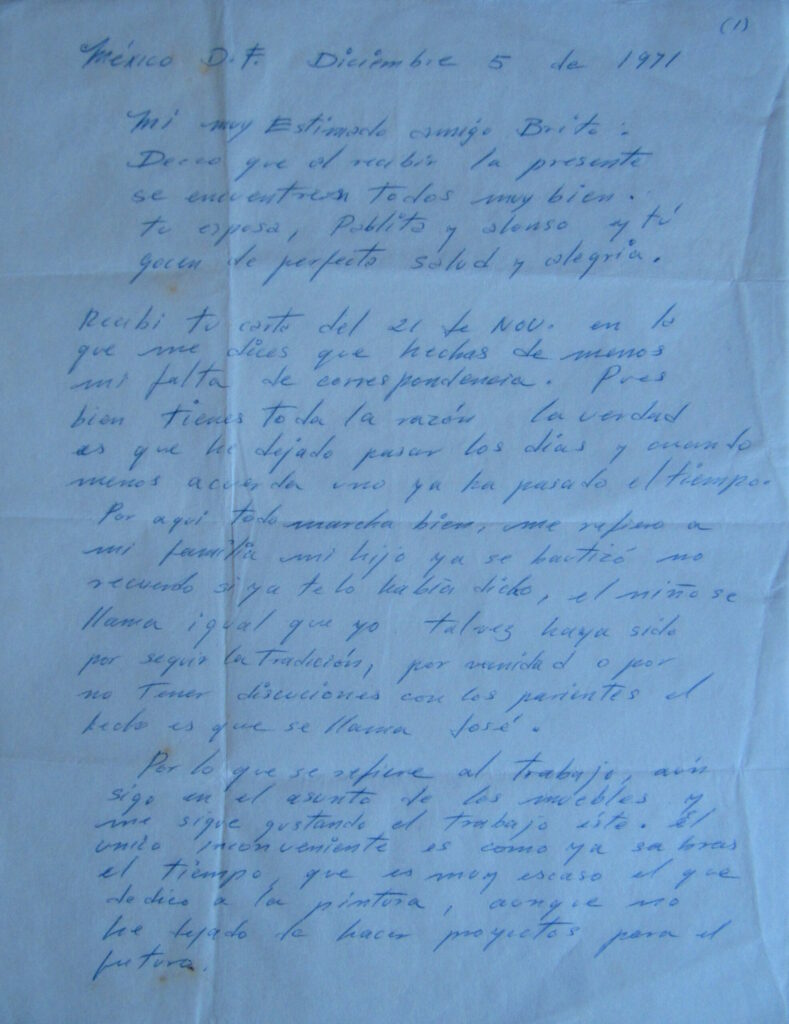 (1)
México D.F. Diciembre 5 de 1971
Mi muy Estimado amigo Brito:
Deceo que al recibir la presente
se encuentren todos muy bien.
tu esposa, Pablito y alonso y tú
gocen de perfecta salud y alegria.
Recibi tu carta del 21 de NOV. en la
que me dices que hechas de menos
mi falta de correspondencia. Pues
bien tienes toda la razón la verdad
es que he dejado pasar los dias y cuando
menos acuerda uno ya ha pasado el tiempo.
Por aqui todo marcha bien, me refiero a
mi familia mi hijo ya se bautizó no
recuerdo si ya te lo había dicho, el niño se
llama igual que yo talvez haya sido
por seguir la tradición, por vanidad o por
no tener discuciones con los parientes el
hecho es que se llama José.
Por lo que se refiere al trabajo, aún
sigo en el asunto de los muebles y
me sigue gustando el trabajo éste. El
unico inconveniente es como ya sabras
el tiempo, que es muy escaso el que
dedico a la pintura, aunque no
he dejado de hacer proyectos para el
futuro.